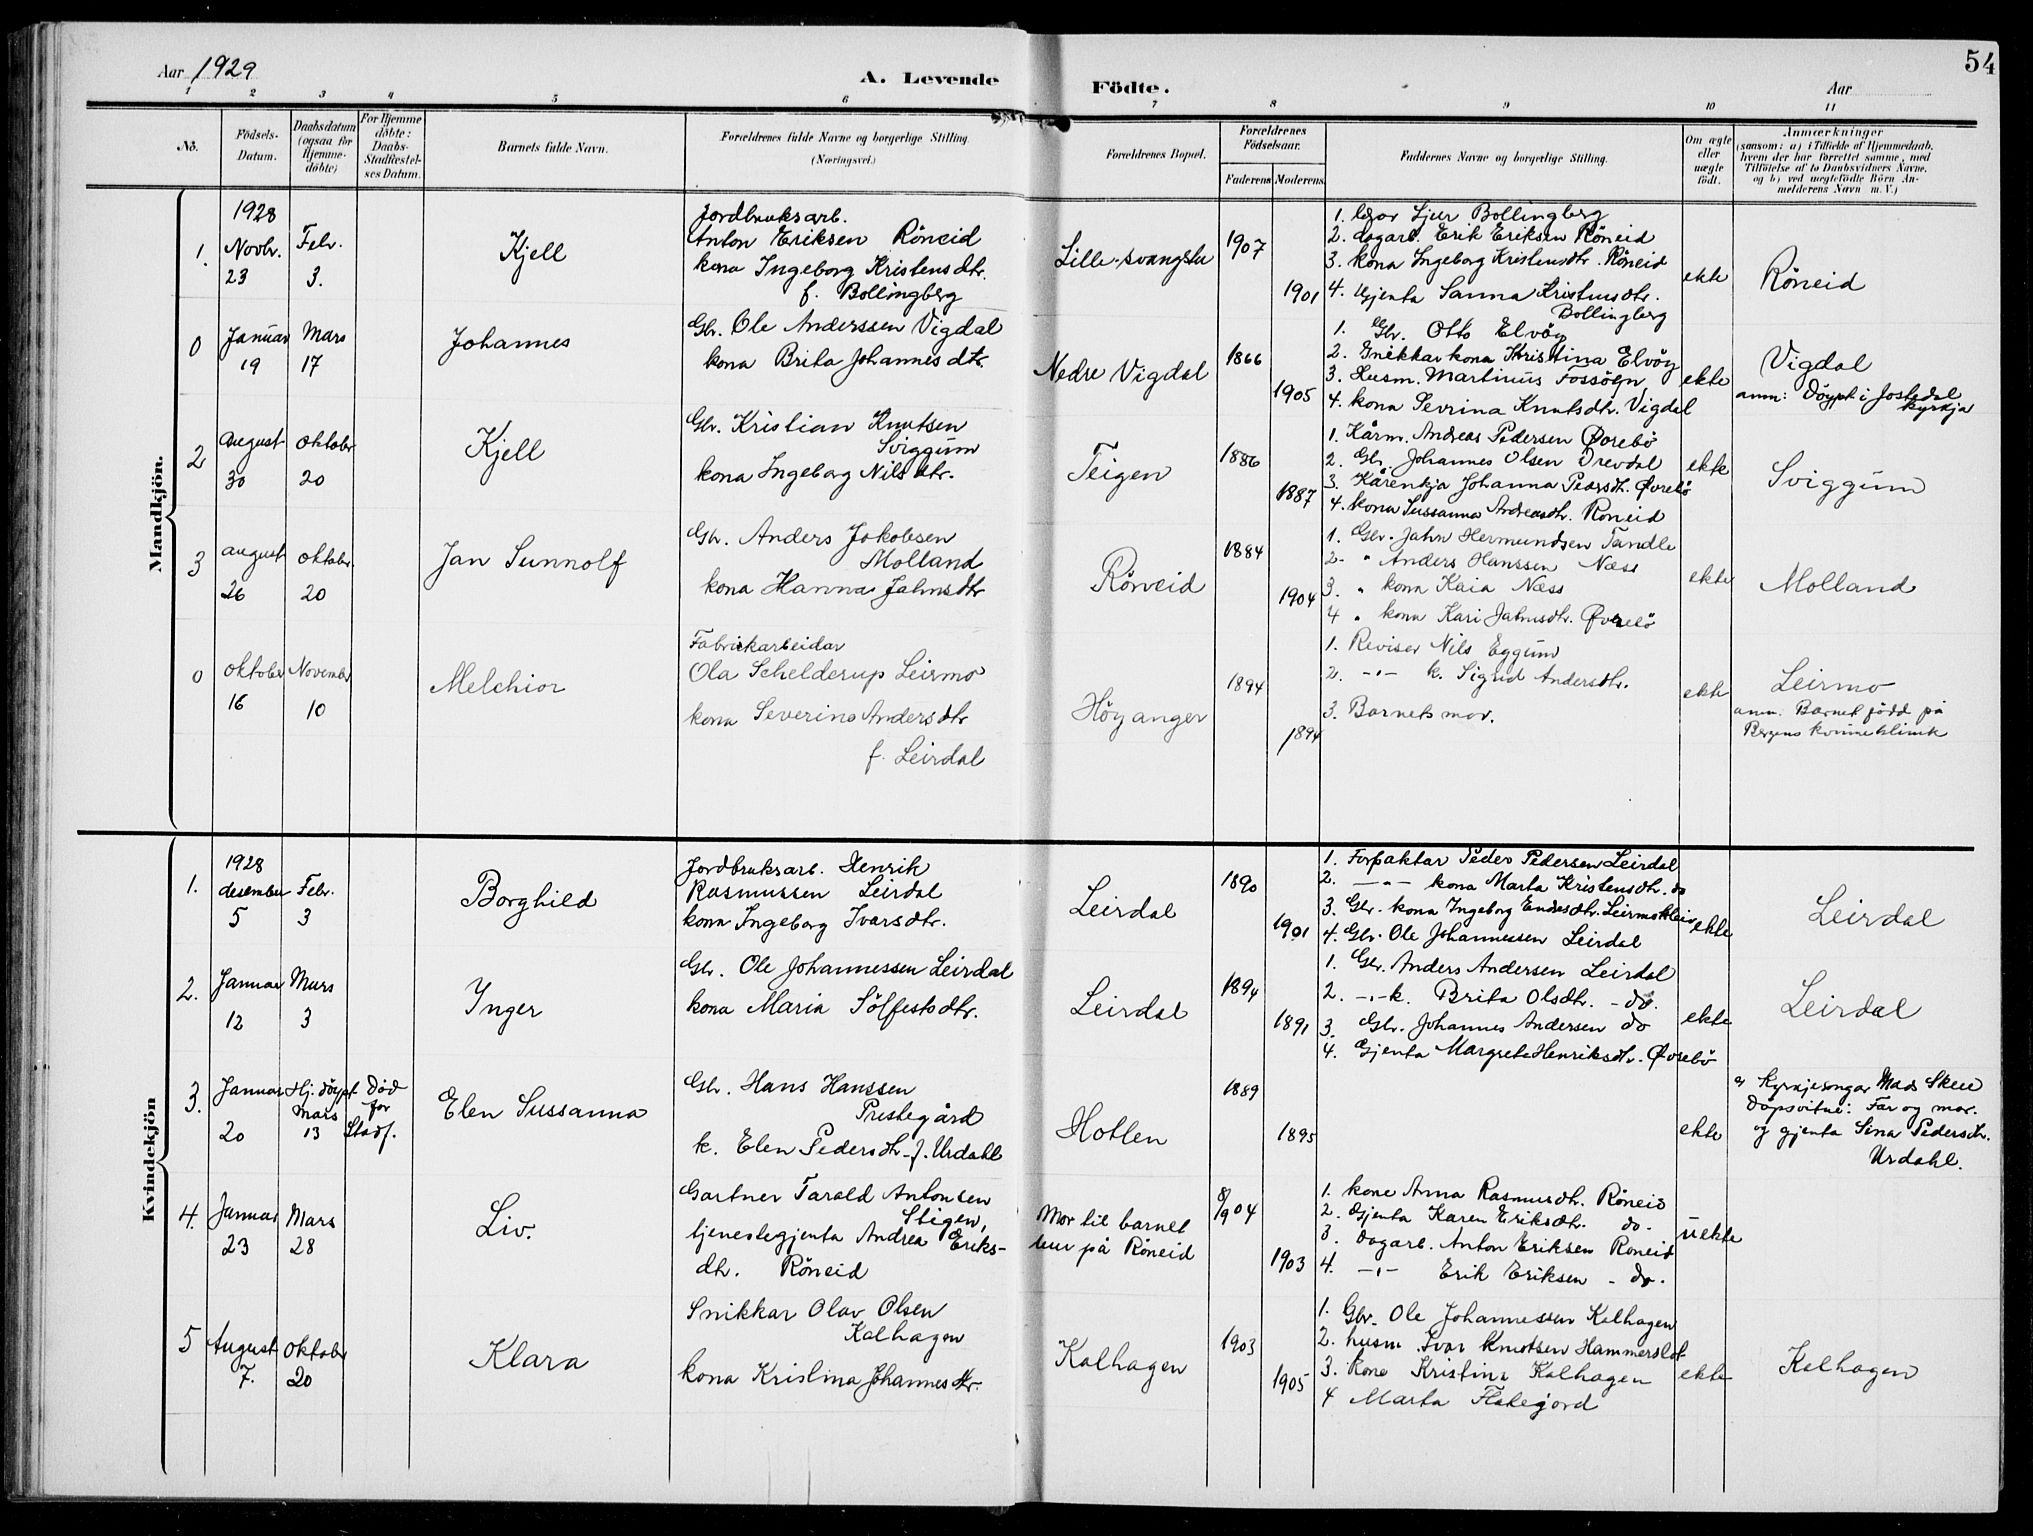 54
Aar 1929
A. Levende Födte.
Aar
1 2 3 4 5 6 7 8 9 10 11
No.
Födsels-
Datum.
Daabsdatum
(ogsaa for
Hjemme-
döbte)
For Hjemme
döbte:
Daabs-
Stadfæstel-
ses Datum.
Barnets fulde Navn.
Forældrenes fulde Navne og borgerlige Stilling.
(Næringsvei.)
Forældrenes Bopæl.
Forældrenes
Födselsaar.
Faderens Moderens
Faddernes Navne og borgerlige Stilling.
Om ægte
eller
uægte
födt.
Anmærkninger
(saasom: a) i Tilfælde af Hjemmedaab,
hvem der har forrettet samme, med
Tilföielse af to Daabsvidners Navne,
og b) ved uægtefödte Börn An-
melderens Navn m. V.)
Mandkjön.
1.
1928
Novbr.
23
Febr.
3.
Kjell
Jordbruksarb.
Anton Eriksen Röneid
kona Ingeborg Kristensdtr.
f. Bollingberg
1907
1901
1. Sjur Bollingberg
2. dagarb. Erik Eriksen Röneid
3. kona Ingeborg Kristensdtr. Röneid
4. Gjenta Sanna Kristensdtr.
Bollingberg
ekte
Röneid
0
Januar
19
Mars
17
Johannes
Gbr. Ole Anderssen Vigdal
kona Brita Johannesdtr.
Nedre Vigdal
1866
1905
1. Gbr. Otto Elvöy
2. Snikkarkona Kristina Elvöy
3. Husm. Martinus Fossöyn
4. kona Sevrina Knutsdtr. Vigdal
ekte
Vigdal
anm: Döypt i Jostedal
kyrkja
2
august
30
oktober
20
Kjell
Gbr. Kristian Knutsen
Sviggum
kona Ingeborg Nilsdtr.
Teigen
1886
1887
1. Kårm. Andreas Pedersen Övrebö
2. Gbr. Johannes Olsen Drevdal
3. Kårenkja Johanna Pedersdtr. Övrebö
4. kona Sussanna Andreasdtr. Röneid
ekte
Sviggum
3
august
26
oktober
20
Jan Sunnolf
Gbr. Anders Jakobsen
Molland
kona Hanna Jahnsdtr
Röneid
1884
1904
1. Gbr. Jahn Hermundsen Tandle
2. " Anders Hanssen Næss
3. " kona Kaia Næss
4 " kona Kari Jahnsdtr. Övrebö
ekte
Molland
0
oktober
16
November
10
Melchior
Fabrikkarbeidar
Ola Schelderup Leirmo
kona Severine Andersdtr
f. Leirdal
Höyanger
1894
1894
1. Reviser Nils Eggum
2. -"- k. Sigrid Andersdtr.
3. Barnets mor.
ekte
Leirmo
anm. Barnet född på
Bergens kvinneklinik
Kvindekjön
1.
1928
desember
5
Febr.
3
Borghild
Jordbruksarb. Henrik
Rasmussen Leirdal
kona Ingeborg Ivarsdtr.
Leirdal
1890
1901
1. Forpaktar Peder Pedersen Leirdal
2. -"- kona Marta Kristensdtr. do
3. Gbr. kona Ingeborg Endresdtr. Leirmo
4. Gbr. Ole Johannessen Leirdal
ekte
Leirdal
2.
Januar
12
Mars
3
Inger
Gbr. Ole Johannessen Leirdal
kona Maria Sölfestsdtr.
Leirdal
1894
1891
1. Gbr. Anders Andersen Leirdal
2. -"- k. Brita Olsdtr. - do.
3. Gbr. Johannes Andersen do
4. Gjenta Margrete Henriksdtr. Övrebö
ekte
Leirdal
3.
Januar
20
Hj. döypt
Mars
13
Död
for
Stadf.
Elen Sussanna
Gbr. Hans Hanssen
Prestegård
k. Elen Pedersdtr. f. Urdahl
Hotlen
1889
1895
ekte
a) Kyrkjesongar Mads Skeie
Döpsvitne: Far og mor.
og gjenta Sina Pedersdtr.
Urdahl.
4.
Januar
23
Mars
28
Liv.
Gartner Tarald Antonsen
Stigen,
tjenestegjenta Andrea Eriks-
dtr. Röneid
Mor til barnet
bur på Röneid
8/9 04
1903
1. kone Anna Rasmusdtr. Röneid
2. Gjenta Karen Eriksdtr. do.
3. Dagarb. Anton Eriksen Röneid
4. -"- Erik Eriksen - do.
uekte
5
August
7.
oktober
20
Klara
Snikkar Olav Olsen
Kalhagen
kona Kristina Johannesdtr.
Kalhagen
1903
1905
1. Gbr. Ole Johannessen Kalhagen
2. husm Ivar Knutsen Hammerslot
3. kone Kristina Kalhagen
4 Marta Flategjord
ekte
Kalhagen